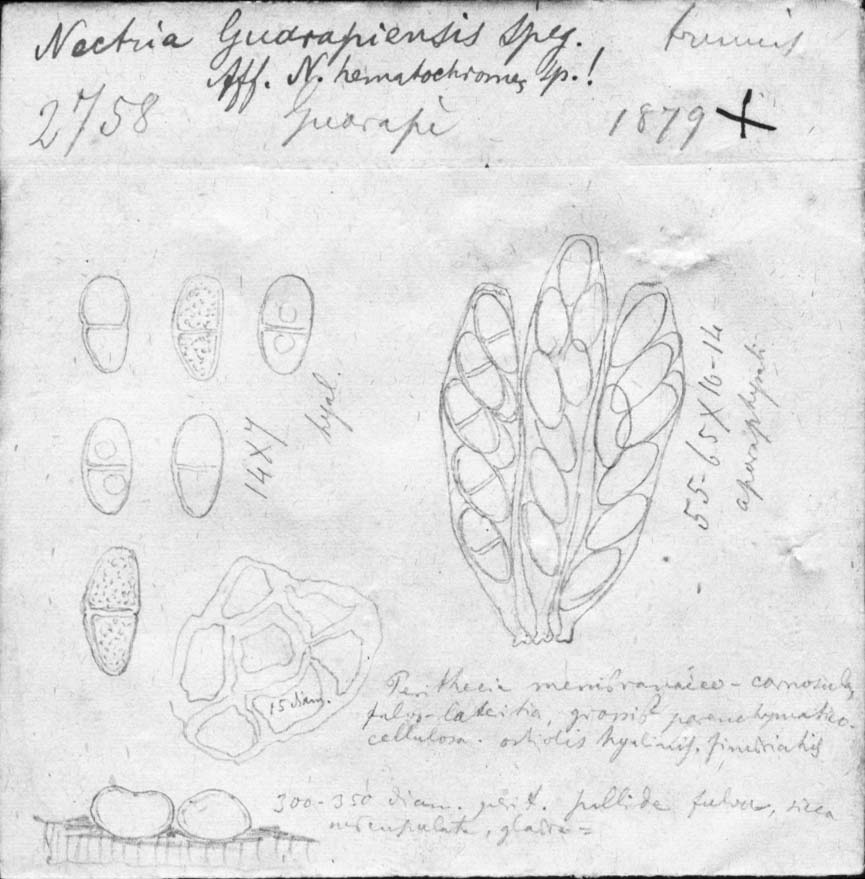 Nectria Guarapiensis Speg. truncis
Aff. N. hematochroma, sp.!
2758 Guarapi 1879 +
hyal.
14X7
55-65X10-14
aparaphysati
15 diam.
Perithecia membranaceo-carnosula,
fulvo-lateritia, grosse parenchymatico-
cellulosa. ostiolis hyalinis, fimbriatis
300-350 diam. perit. pallide fulva, sicca
glabra=